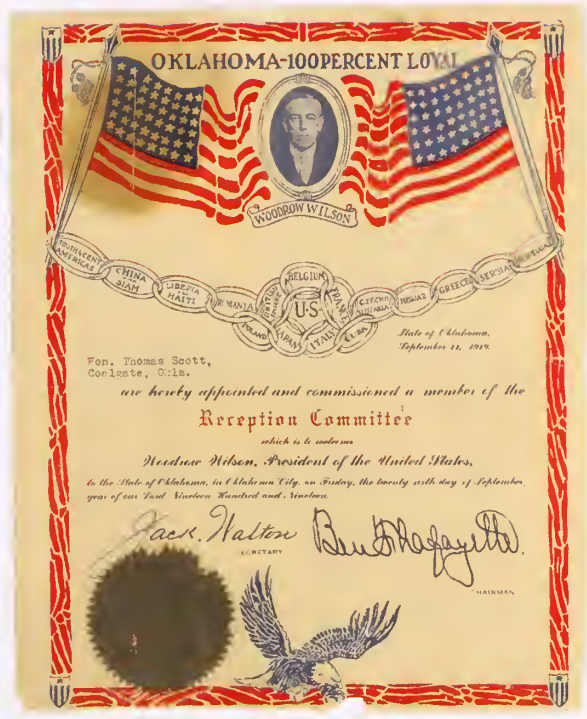 OKLAHOMA-100 PERCENT LOYAL
WOODROW WILSON
SOUTH & CENT AMERICAS
CHINA
SIAM
LIBERIA
HAITI
RUMANIA
POLAND
BELGIUM
FRANCE
U-S
JAPAN
ITALY
CUBA
HEDJAZ
GREECE
SERBIA
PORTUGAL
State of Oklahoma,
September 11, 1919.
Hon. Thomas Scott,
Coalgate, Okla.
are hereby appointed and commissioned a member of the
Reception Committee
which is to welcome
Woodrow Wilson, President of the United States,
to the State of Oklahoma, in Oklahoma City, on Friday, the twenty sixth day of September,
year of our Lord Nineteen Hundred and Nineteen.
Jack Walton
SECRETARY
Ben F. Lafayette.
CHAIRMAN